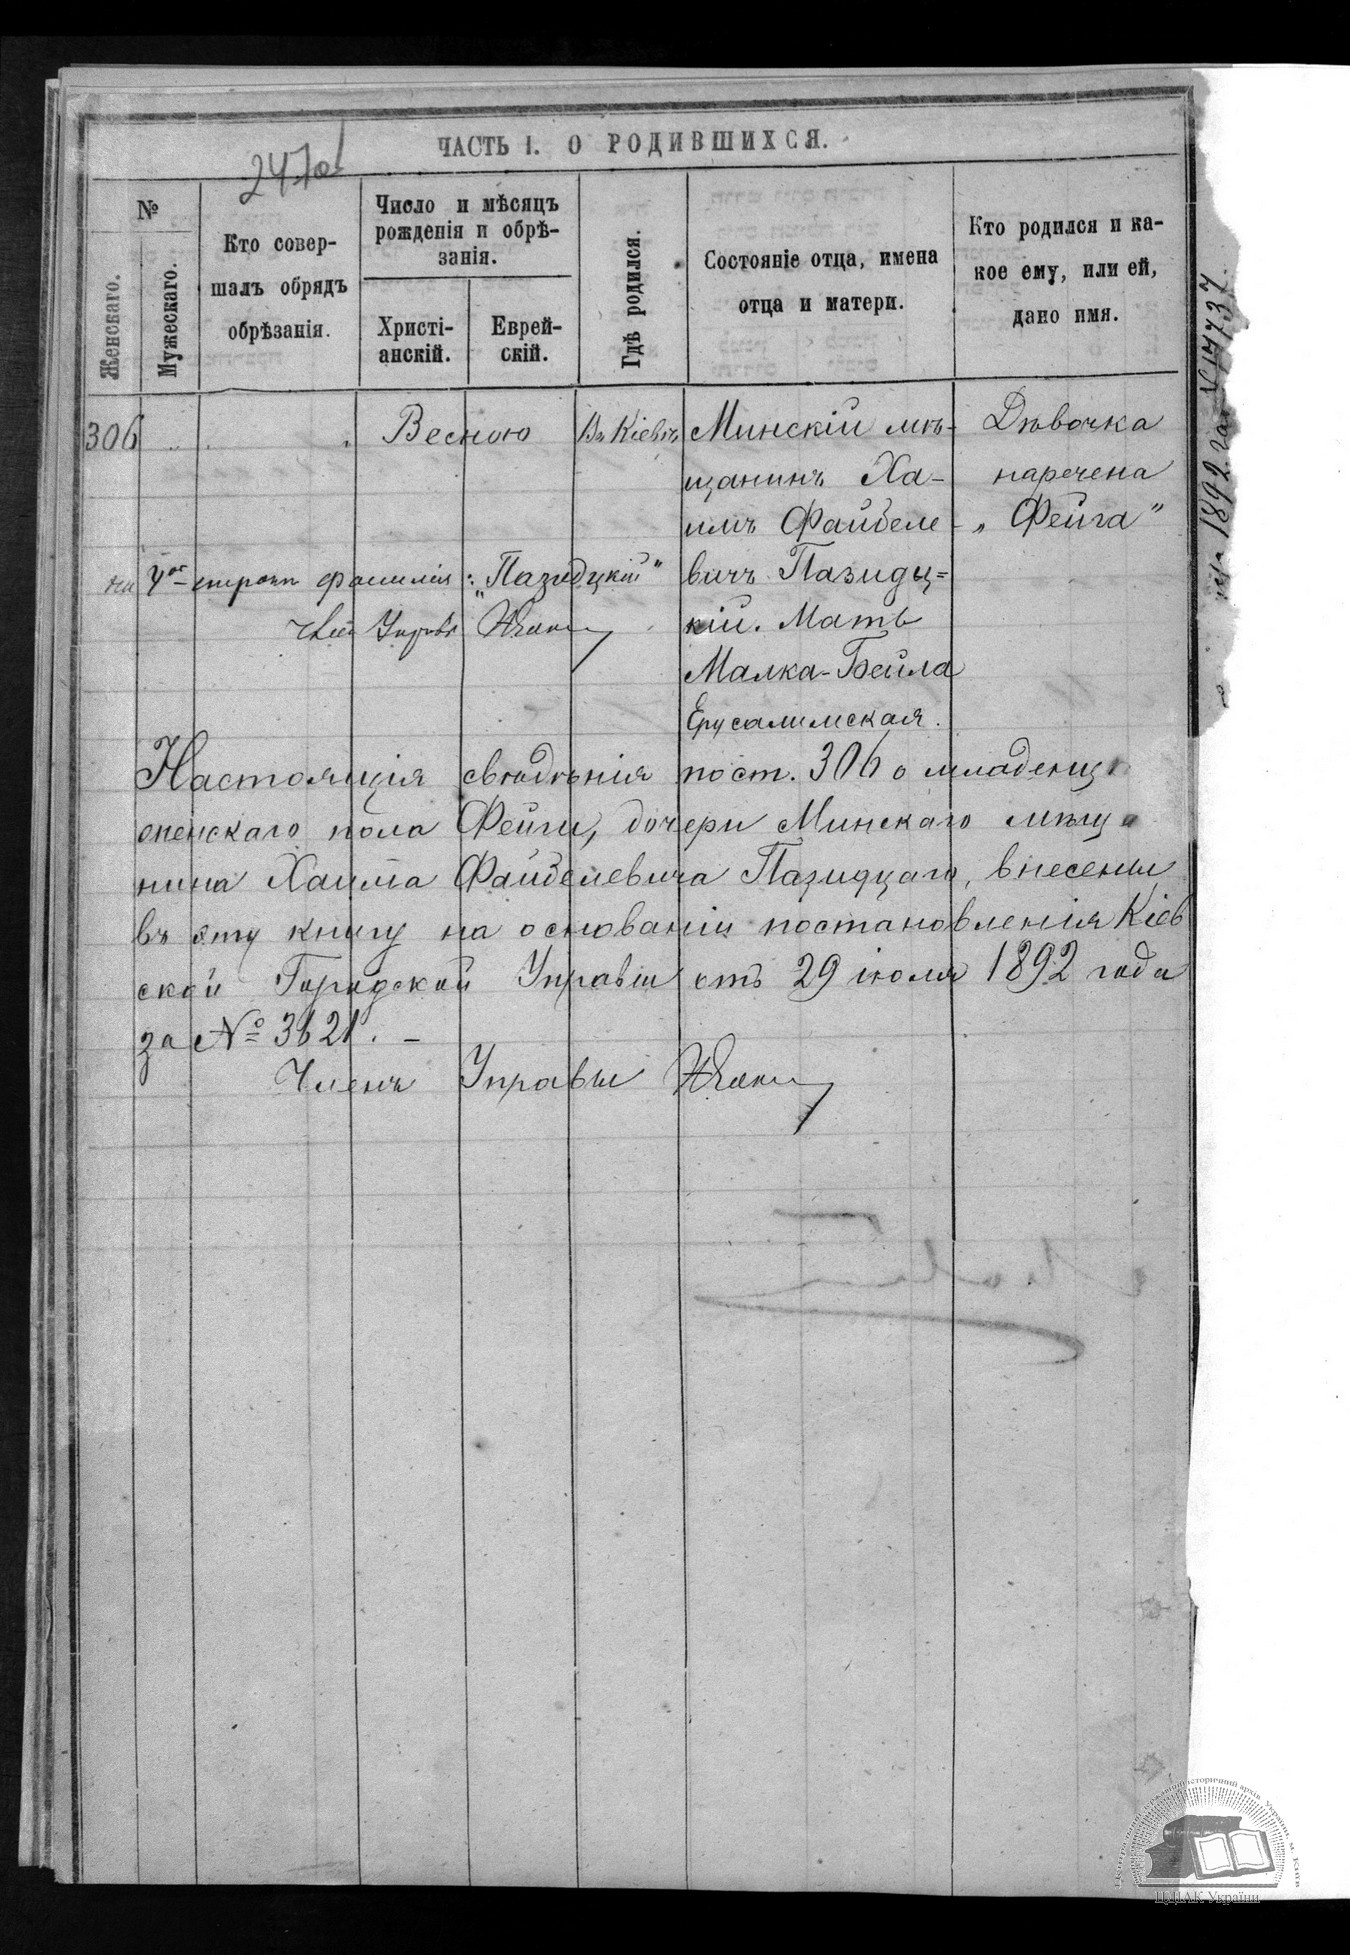 ЧАСТЬ I. О РОДИВШИХСЯ.
№
Женскаго.
Мужескаго.
Кто совер-
шалъ обрядъ
обрѣзанія.
Число и мѣсяцъ
рожденія и обрѣ-
занія.
Христі-
анскій.
Еврей-
скій.
Гдѣ родился.
Состояніе отца, имена
отца и матери.
Кто родился и ка-
кое ему, или ей,
дано имя.
306
Весною
Въ Кіевѣ
Минскій мѣ-
щанинъ Ха-
имъ Файбеле-
вичъ Пазидц=
кій. Мать
Малка-Бейла
Ерусалимская.
Дѣвочка
наречена
„Фейга"
на 4ой строкѣ фамилія: „Пазидцкій"
Настоящія свѣдѣнія по ст. 306 о младенцѣ
женскаго пола Фейги, дочери Минскаго мѣща
нина Хаима Файбелевича Пазидцкаго, внесены
въ эту книгу на основаніи постановленія Кіев
ской Городской Управы отъ 29 іюля 1892 года
за № 3621. -
Членъ Управы
1892 года № 17737.
ЦДІАК України